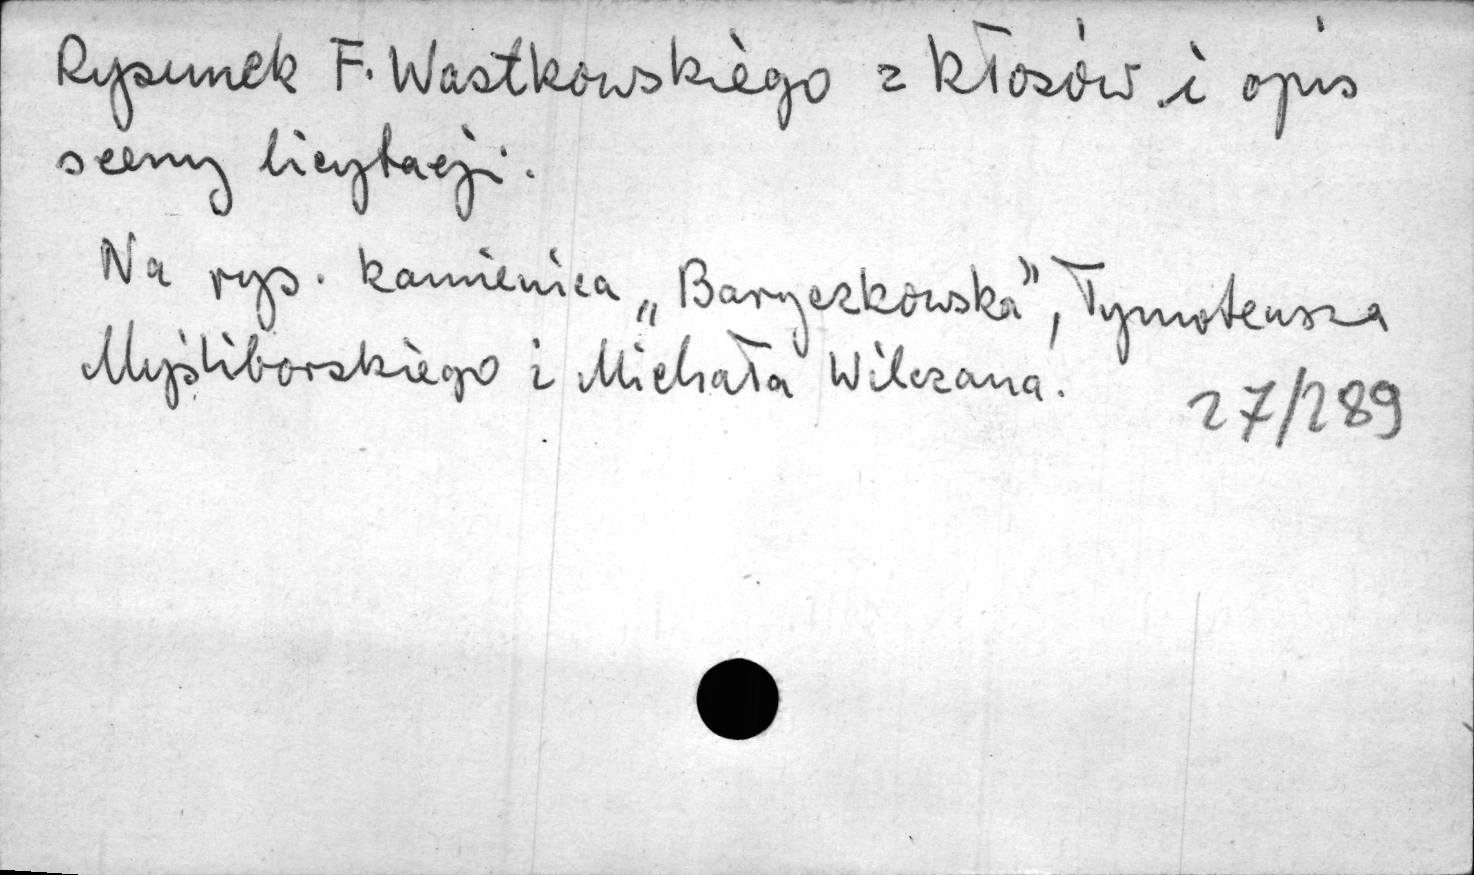 Rysunek F. Wastkowskiego z Kłosów i opis
sceny licytacji.
Na rys. kamienica „Baryczkowska”, Tymoteusza
Myśliborskiego i Michała Wilczana.
27/289